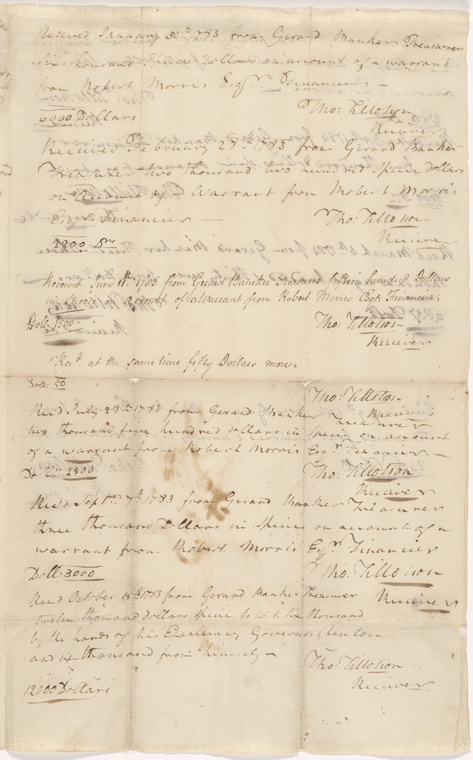 Received January 30th 1783 from Gerard Banker Treasurer
six thousand Dollars on account of a warrant
from Robert Morris Esqr Financier —
Tho: Tillotson
6000 Dollars
Receiver
Received February 28th 1783 from Gerard Banker
Treasurer two thousand two hundred specie Dollars
on Account of a Warrant from Robert Morris
Esqr Financier —
Tho: Tillotson
2200 Drs
Receiver
Received June 1783 from Gerard Bancker Treasurer fifteen hundred Dollars
in specie on account of a Warrant from Robert Morris Esqr Financier,
Doll: 1500
Tho: Tillotson
Receiver
Recd. at the same time fifty Dollars more.
Doll: 50
Tho: Tillotson
Receiver
Recd July 28th 1783 from Gerard Banker Treasurer
two thousand five hundred dollars in specie on account
of a warrant from Robert Morris Esqr Financier —
2500
Tho: Tillotson
Receiver
Recd Septr 7th 1783 from Gerard Banker Treasurer
three thousand Dollars in specie on account of a
warrant from Robert Morris Esqr Financier
Doll: 3000
Tho: Tillotson
Receiver
Recd October 1783 from Gerard Banker Treasurer
twelve thousand dollars specie to wit six thousand
by the hands of his Excellency Governor Clinton
and six thousand from himself —
Tho: Tillotson
12000 Dollars
Receiver